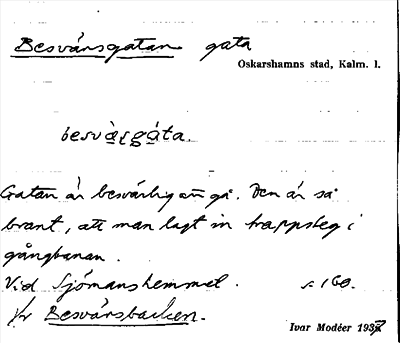 Besvärsgatan gata
Oskarshamns stad, Kalm. l.
besvä̀rsgáta.
Gatan är besvärlig att gå. Den är så
brant, att man lagt in trappsteg i
gångbanan.
Vid Sjömanshemmet. s. 160.
Jfr Besvärsbacken.
Ivar Modéer 1937